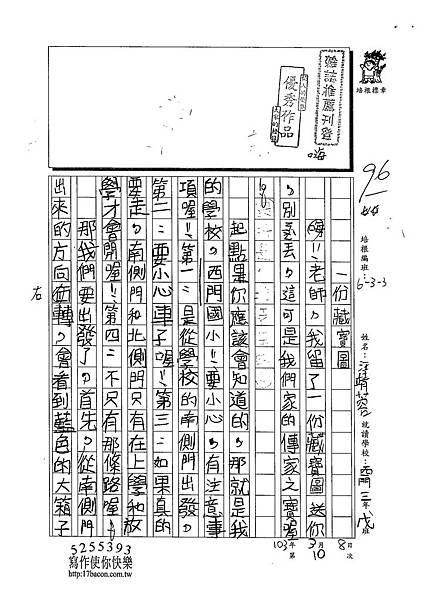 培根標章
韓誌推薦刊登
優秀作品
嗨
96
培根編班：6-3-3
姓名：
就讀學校：西門三年戊班
103年3月8日
第10次
一份藏寶圖
嗨！！老師，我留了一份藏寶圖送你
，別弄丟，這可是我們家的傳家之寶喔
！
起點是你應該會知道的，那就是我
的學校，西門國小！要小心，有注意事
項喔！！第一：是從學校的南側門出發。
第二：要小心車子喔！第三：如果真的
要走，南側門和北側門只有在上學和放
學才會開喔！！第四：不只有那條路喔！
那我們要出發了，首先，從南側門
出來的方向右轉，會看到藍色的大箱子
右
5255393
寫作使你快樂
http://17bacon.com.tw